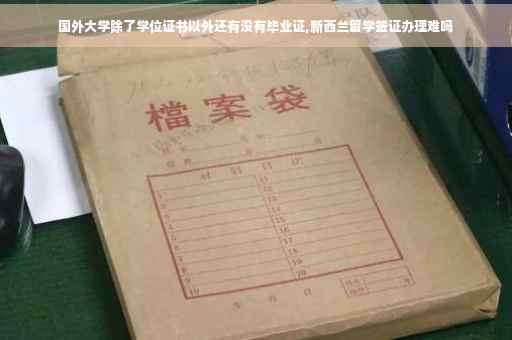 国外大学除了学位证书以外还有没有毕业证,新西兰留学签证办理难吗
檔案袋
材料目次
1 11
2 12
3 13
4 14
5 15
6 16
7 17
8 18
9 19
10 20
年 月 日